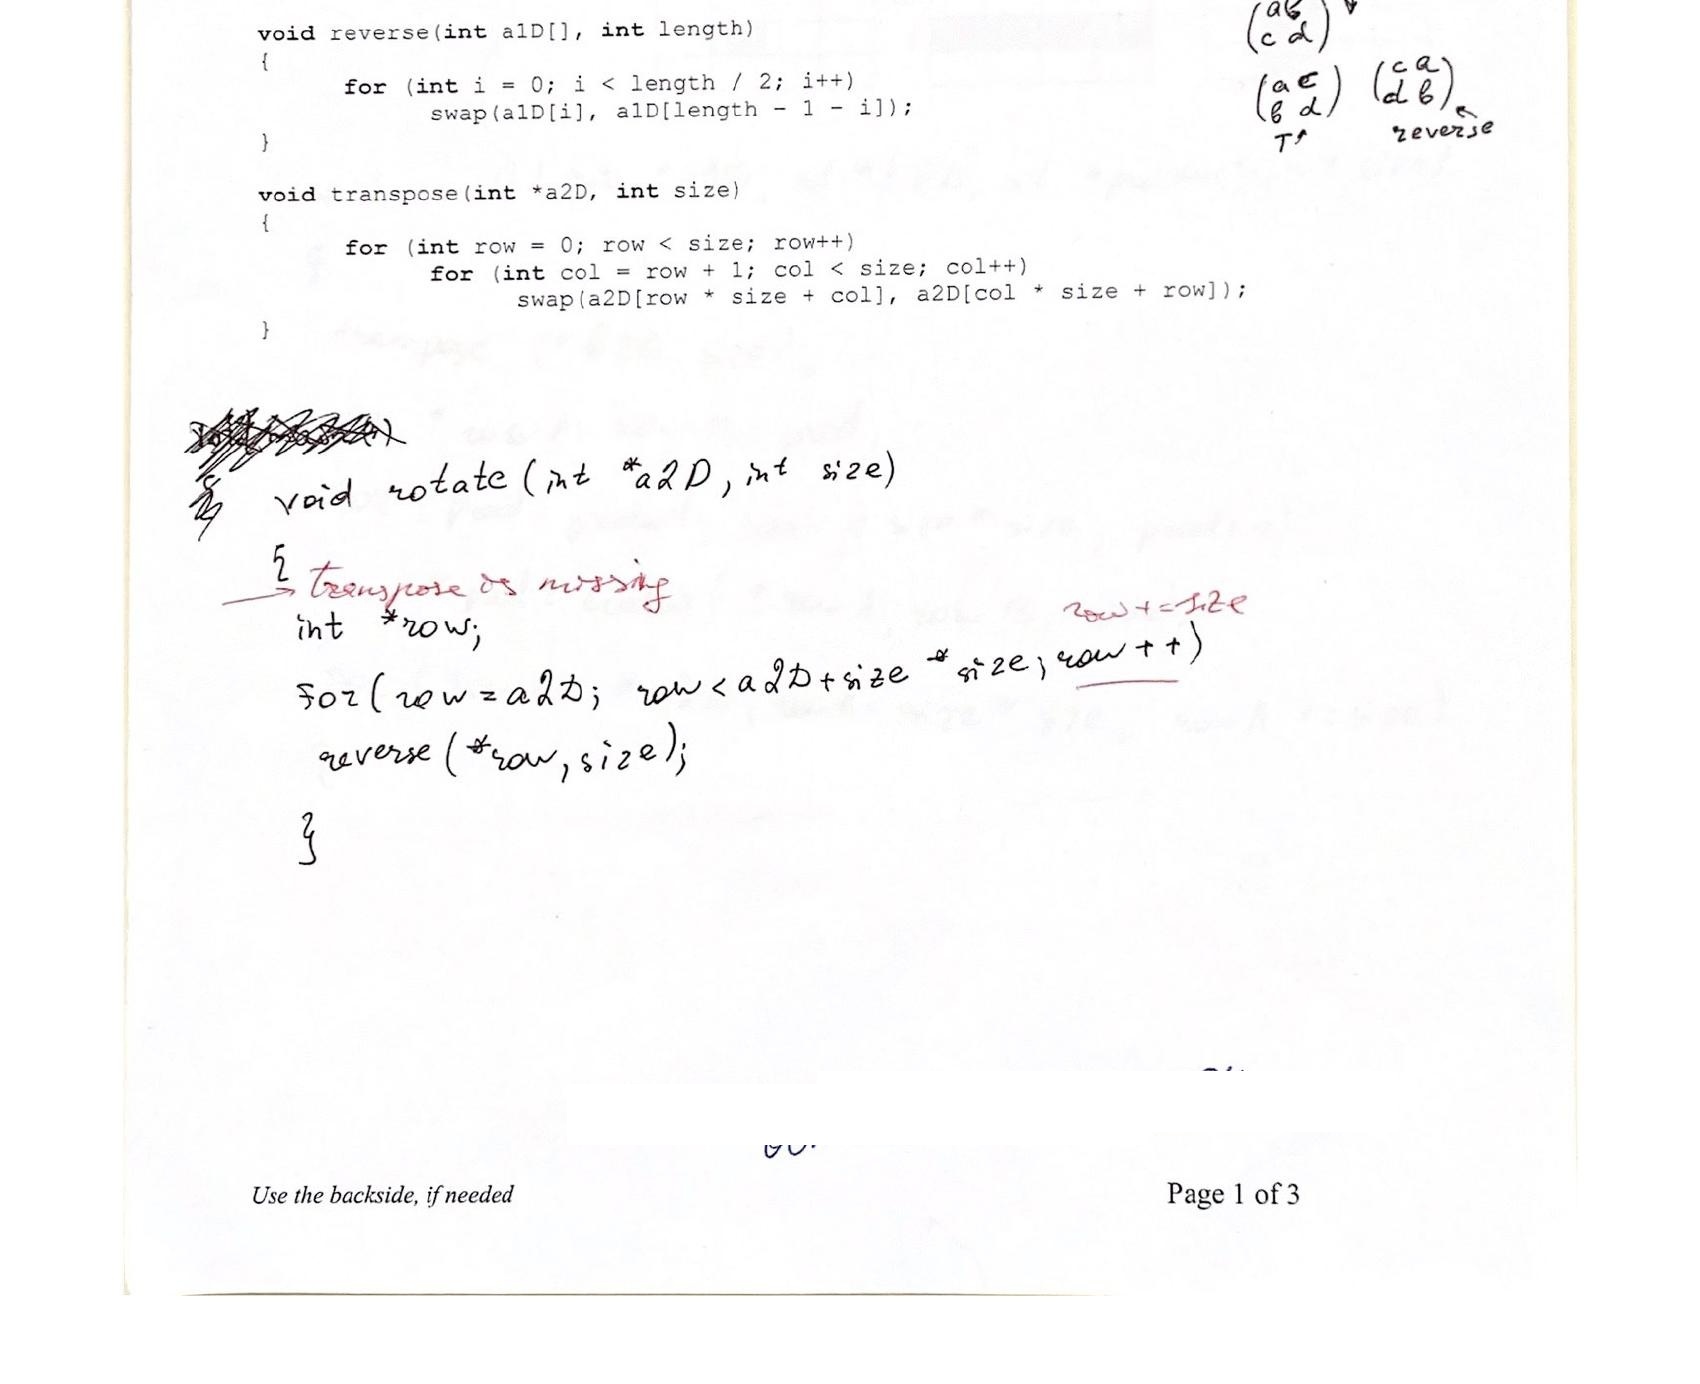 void reverse(int a1D[], int length)
{
for (int i = 0; i < length / 2; i++)
swap(a1D[i], a1D[length - 1 - i]);
}
void transpose(int *a2D, int size)
{
for (int row = 0; row < size; row++)
for (int col = row + 1; col < size; col++)
swap(a2D[row * size + col], a2D[col * size + row]);
}
(a b
c d)
(a c
b d)
T
(c a
d b)
reverse
void rotate (int *a2D, int size)
{
transpose is missing
int *row;
row += size
for (row = a2D; row < a2D + size * size; row ++)
reverse (*row, size);
}
Use the backside, if needed
Page 1 of 3